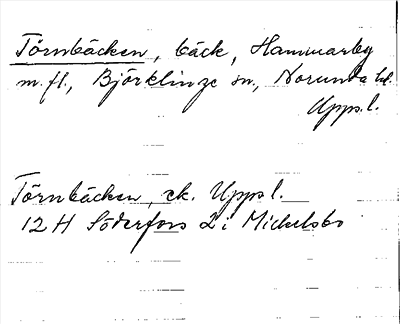 Törnbäcken, bäck, Hammarby
m. fl., Björklinge sn, Norunda hd.
Upps. l.
Törnbäcken, ek. Upps l.
12 H Söderfors 2 i Mickelsbo